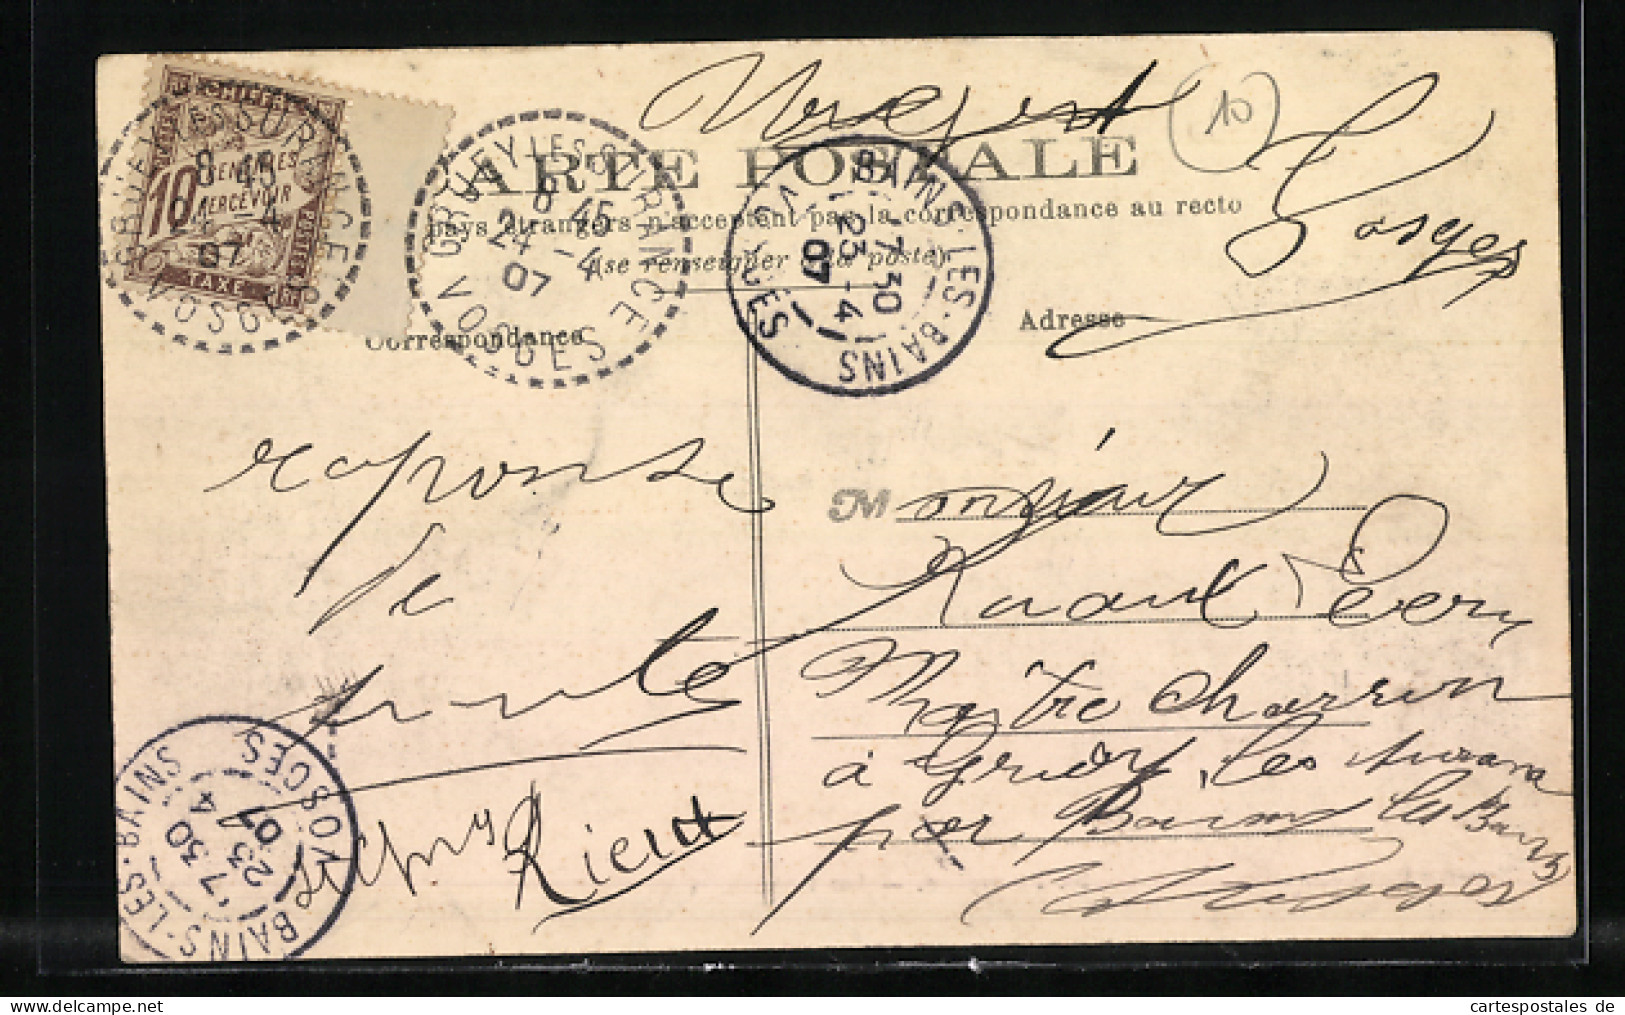 Urgent
10
Vosges
CARTE POSTALE
pays étrangers n'acceptent pas la correspondance au recto
(se renseigner à la poste)
Correspondance
Adresse
CHIFFRE
10 CENTIMES
À PERCEVOIR
TAXE
GRUEY LES SURANCE
8 45
24 -4
07
VOSGES
GRUEY LES SURANCE
8 45
24 -4
07
VOSGES
BAINS-LES-BAINS
7 30
23 -4
07
VOSGES
réponse
de
suite
Monsieur
Raoul
Maitre charron
à Gruey les Surance
par Bains les Bains
Vosges
BAINS-LES-BAINS
7 30
23 4
07
VOSGES
cartespostales de